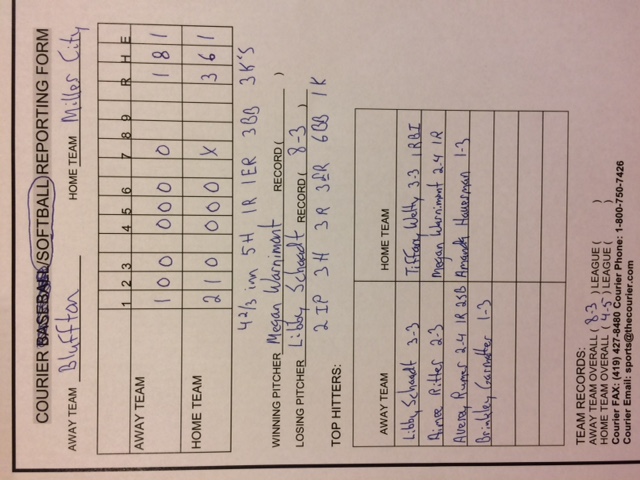 COURIER BASEBALL/SOFTBALL REPORTING FORM
AWAY TEAM Bluffton HOME TEAM Miller City
1 2 3 4 5 6 7 8 9 R H E
AWAY TEAM 1 0 0 0 0 0 0 1 8 1
HOME TEAM 2 1 0 0 0 0 X 3 6 1
4 2/3 inn 5H 1R 1ER 3BB 3K's
WINNING PITCHER Megan Warnimont RECORD ( )
LOSING PITCHER Libby Schaadt RECORD ( 8-3 )
2 IP 3H 3R 3ER 6BB 1K
TOP HITTERS:
AWAY TEAM HOME TEAM
Libby Schaadt 3-3 Tiffany Welty 3-3 1RBI
Aimee Ritter 2-3 Megan Warnimont 2-4 1R
Averey Rumer 2-4 1R 2SB Amanda 1-3
Brinkley 1-3
TEAM RECORDS:
AWAY TEAM OVERALL ( 8-3 ) LEAGUE ( )
HOME TEAM OVERALL ( 4-5 ) LEAGUE ( )
Courier FAX: (419) 427-8480 Courier Phone: 1-800-750-7426
Courier Email: sports@thecourier.com